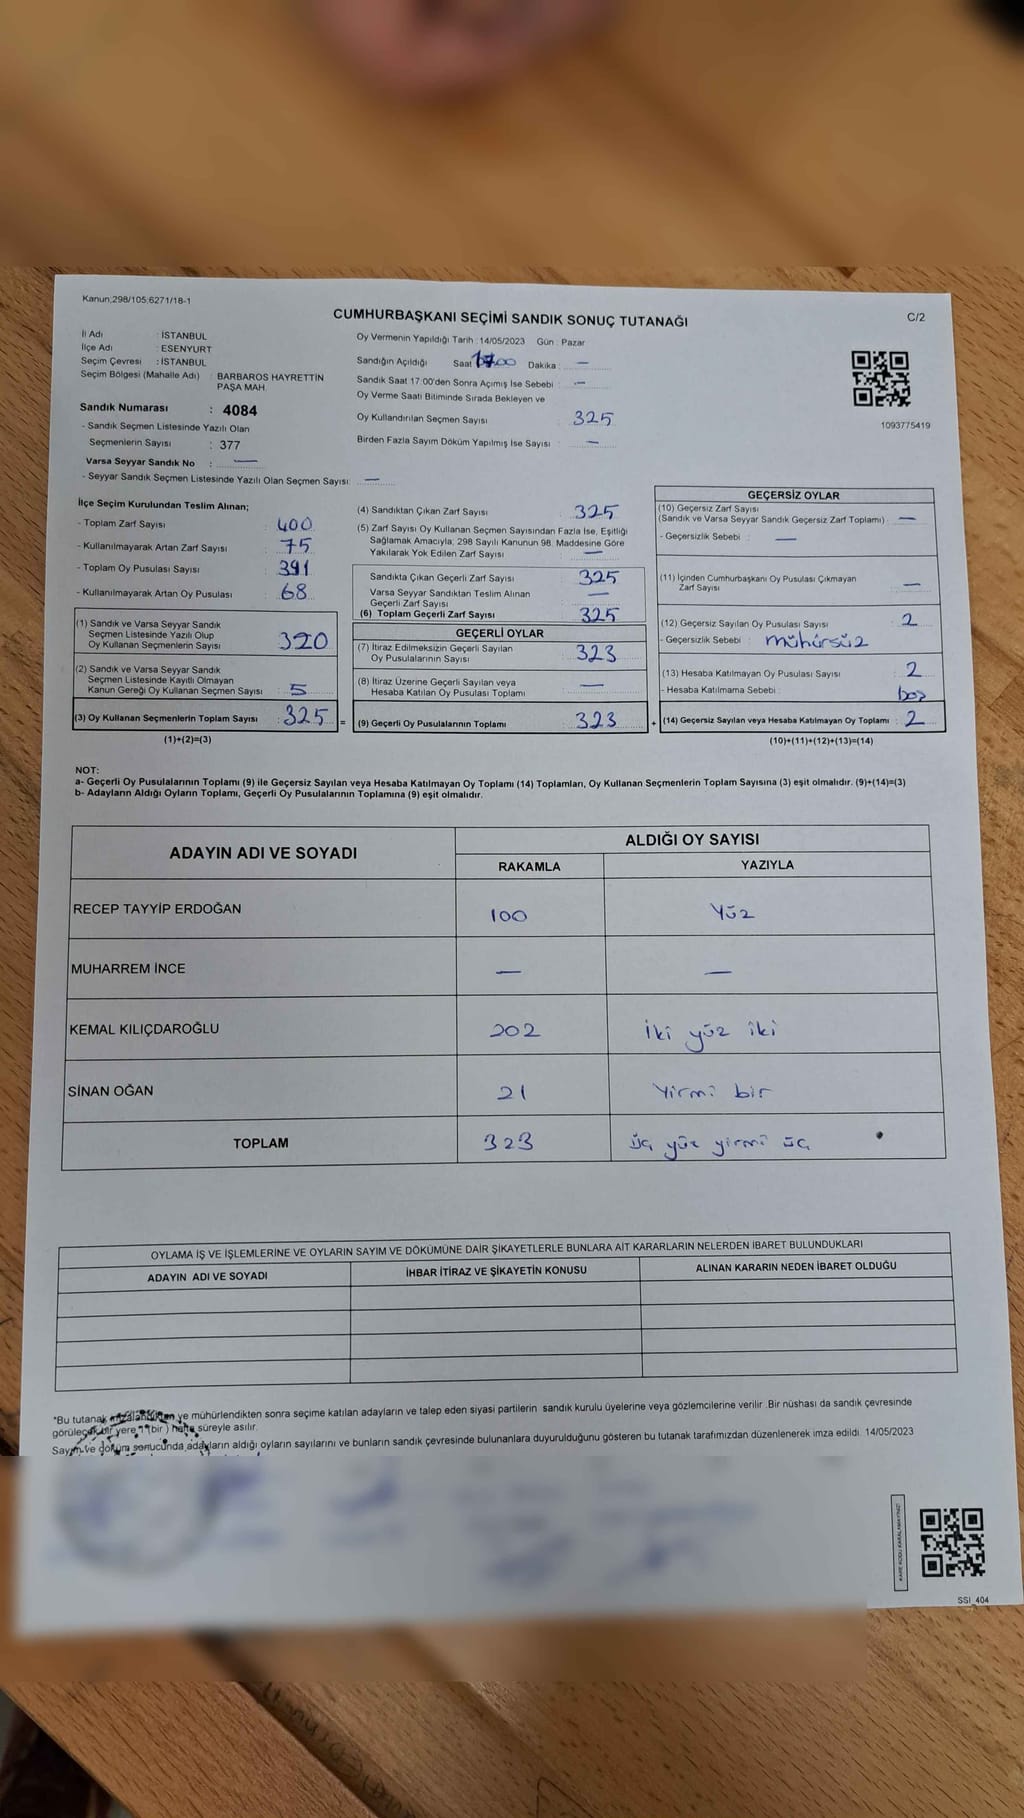 Kanun;298/105;6271/18-1
CUMHURBAŞKANI SEÇİMİ SANDIK SONUÇ TUTANAĞI
C/2
İl Adı : İSTANBUL
İlçe Adı : ESENYURT
Seçim Çevresi : İSTANBUL
Seçim Bölgesi (Mahalle Adı) : BARBAROS HAYRETTİN
PAŞA MAH.
Sandık Numarası : 4084
- Sandık Seçmen Listesinde Yazılı Olan
Seçmenlerin Sayısı : 377
Varsa Seyyar Sandık No : —
- Seyyar Sandık Seçmen Listesinde Yazılı Olan Seçmen Sayısı: —
Oy Vermenin Yapıldığı Tarih :14/05/2023 Gün : Pazar
Sandığın Açıldığı Saat 17:00 Dakika : —
Sandık Saat 17:00'den Sonra Açımış İse Sebebi : —
Oy Verme Saati Bitiminde Sırada Bekleyen ve
Oy Kullandırılan Seçmen Sayısı : 325
Birden Fazla Sayım Döküm Yapılmış İse Sayısı : —
1093775419
İlçe Seçim Kurulundan Teslim Alınan;
- Toplam Zarf Sayısı : 400
- Kullanılmayarak Artan Zarf Sayısı : 75
- Toplam Oy Pusulası Sayısı : 391
- Kullanılmayarak Artan Oy Pusulası : 68
(1) Sandık ve Varsa Seyyar Sandık
Seçmen Listesinde Yazılı Olup
Oy Kullanan Seçmenlerin Sayısı : 320
(2) Sandık ve Varsa Seyyar Sandık
Seçmen Listesinde Kayıtlı Olmayan
Kanun Gereği Oy Kullanan Seçmen Sayısı : 5
(3) Oy Kullanan Seçmenlerin Toplam Sayısı : 325 =
(1)+(2)=(3)
(4) Sandıktan Çıkan Zarf Sayısı : 325
(5) Zarf Sayısı Oy Kullanan Seçmen Sayısından Fazla İse, Eşitliği
Sağlamak Amacıyla; 298 Sayılı Kanunun 98. Maddesine Göre
Yakılarak Yok Edilen Zarf Sayısı : —
Sandıkta Çıkan Geçerli Zarf Sayısı : 325
Varsa Seyyar Sandıktan Teslim Alınan
Geçerli Zarf Sayısı : —
(6) Toplam Geçerli Zarf Sayısı : 325
GEÇERLİ OYLAR
(7) İtiraz Edilmeksizin Geçerli Sayılan
Oy Pusulalarının Sayısı : 323
(8) İtiraz Üzerine Geçerli Sayılan veya
Hesaba Katılan Oy Pusulası Toplamı : —
(9) Geçerli Oy Pusulalarının Toplamı : 323 +
GEÇERSİZ OYLAR
(10) Geçersiz Zarf Sayısı
(Sandık ve Varsa Seyyar Sandık Geçersiz Zarf Toplamı) : —
- Geçersizlik Sebebi : —
(11) İçinden Cumhurbaşkanı Oy Pusulası Çıkmayan
Zarf Sayısı : —
(12) Geçersiz Sayılan Oy Pusulası Sayısı : 2
- Geçersizlik Sebebi : mühürsüz
(13) Hesaba Katılmayan Oy Pusulası Sayısı : 2
- Hesaba Katılmama Sebebi : boş
(14) Geçersiz Sayılan veya Hesaba Katılmayan Oy Toplamı : 2
(10)+(11)+(12)+(13)=(14)
NOT:
a- Geçerli Oy Pusulalarının Toplamı (9) ile Geçersiz Sayılan veya Hesaba Katılmayan Oy Toplamı (14) Toplamları, Oy Kullanan Seçmenlerin Toplam Sayısına (3) eşit olmalıdır. (9)+(14)=(3)
b- Adayların Aldığı Oyların Toplamı, Geçerli Oy Pusulalarının Toplamına (9) eşit olmalıdır.
ADAYIN ADI VE SOYADI
ALDIĞI OY SAYISI
RAKAMLA YAZIYLA
RECEP TAYYİP ERDOĞAN 100 Yüz
MUHARREM İNCE — —
KEMAL KILIÇDAROĞLU 202 İki yüz iki
SİNAN OĞAN 21 Yirmi bir
TOPLAM 323 üç yüz yirmi üç
OYLAMA İŞ VE İŞLEMLERİNE VE OYLARIN SAYIM VE DÖKÜMÜNE DAİR ŞİKAYETLERLE BUNLARA AİT KARARLARIN NELERDEN İBARET BULUNDUKLARI
ADAYIN ADI VE SOYADI İHBAR İTİRAZ VE ŞİKAYETİN KONUSU ALINAN KARARIN NEDEN İBARET OLDUĞU
*Bu tutanak imzalandıktan ve mühürlendikten sonra seçime katılan adayların ve talep eden siyasi partilerin sandık kurulu üyelerine veya gözlemcilerine verilir. Bir nüshası da sandık çevresinde
görülecek bir yere 1 (bir) hafta süreyle asılır.
Sayım ve döküm sonucunda adayların aldığı oyların sayılarını ve bunların sandık çevresinde bulunanlara duyurulduğunu gösteren bu tutanak tarafımızdan düzenlenerek imza edildi. 14/05/2023
KARE KODU KARALAMAYINIZ!
SSI_404